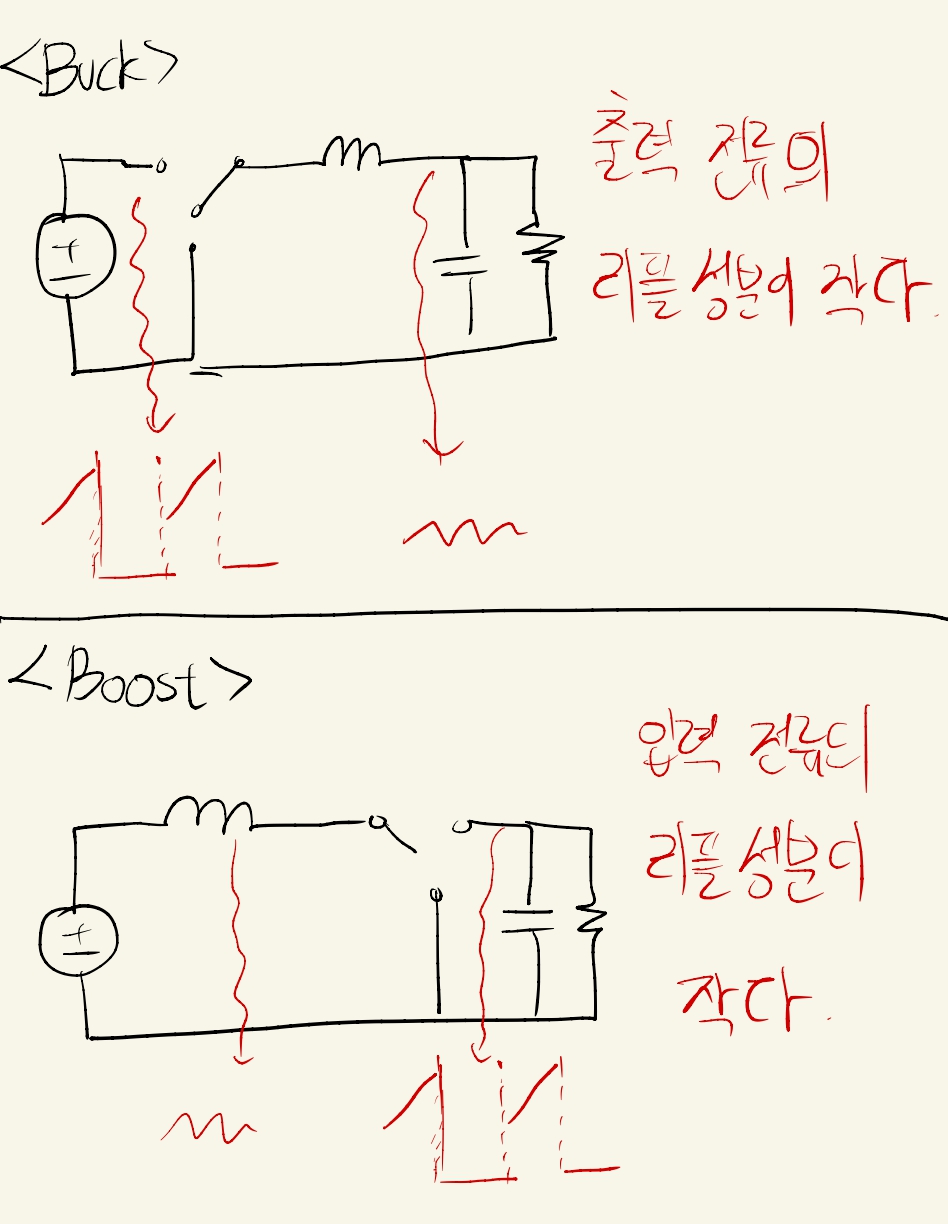 <Buck>
출력 전류의
리플 성분이 작다.
+
<Boost>
입력 전류의
리플 성분이
작다.
+